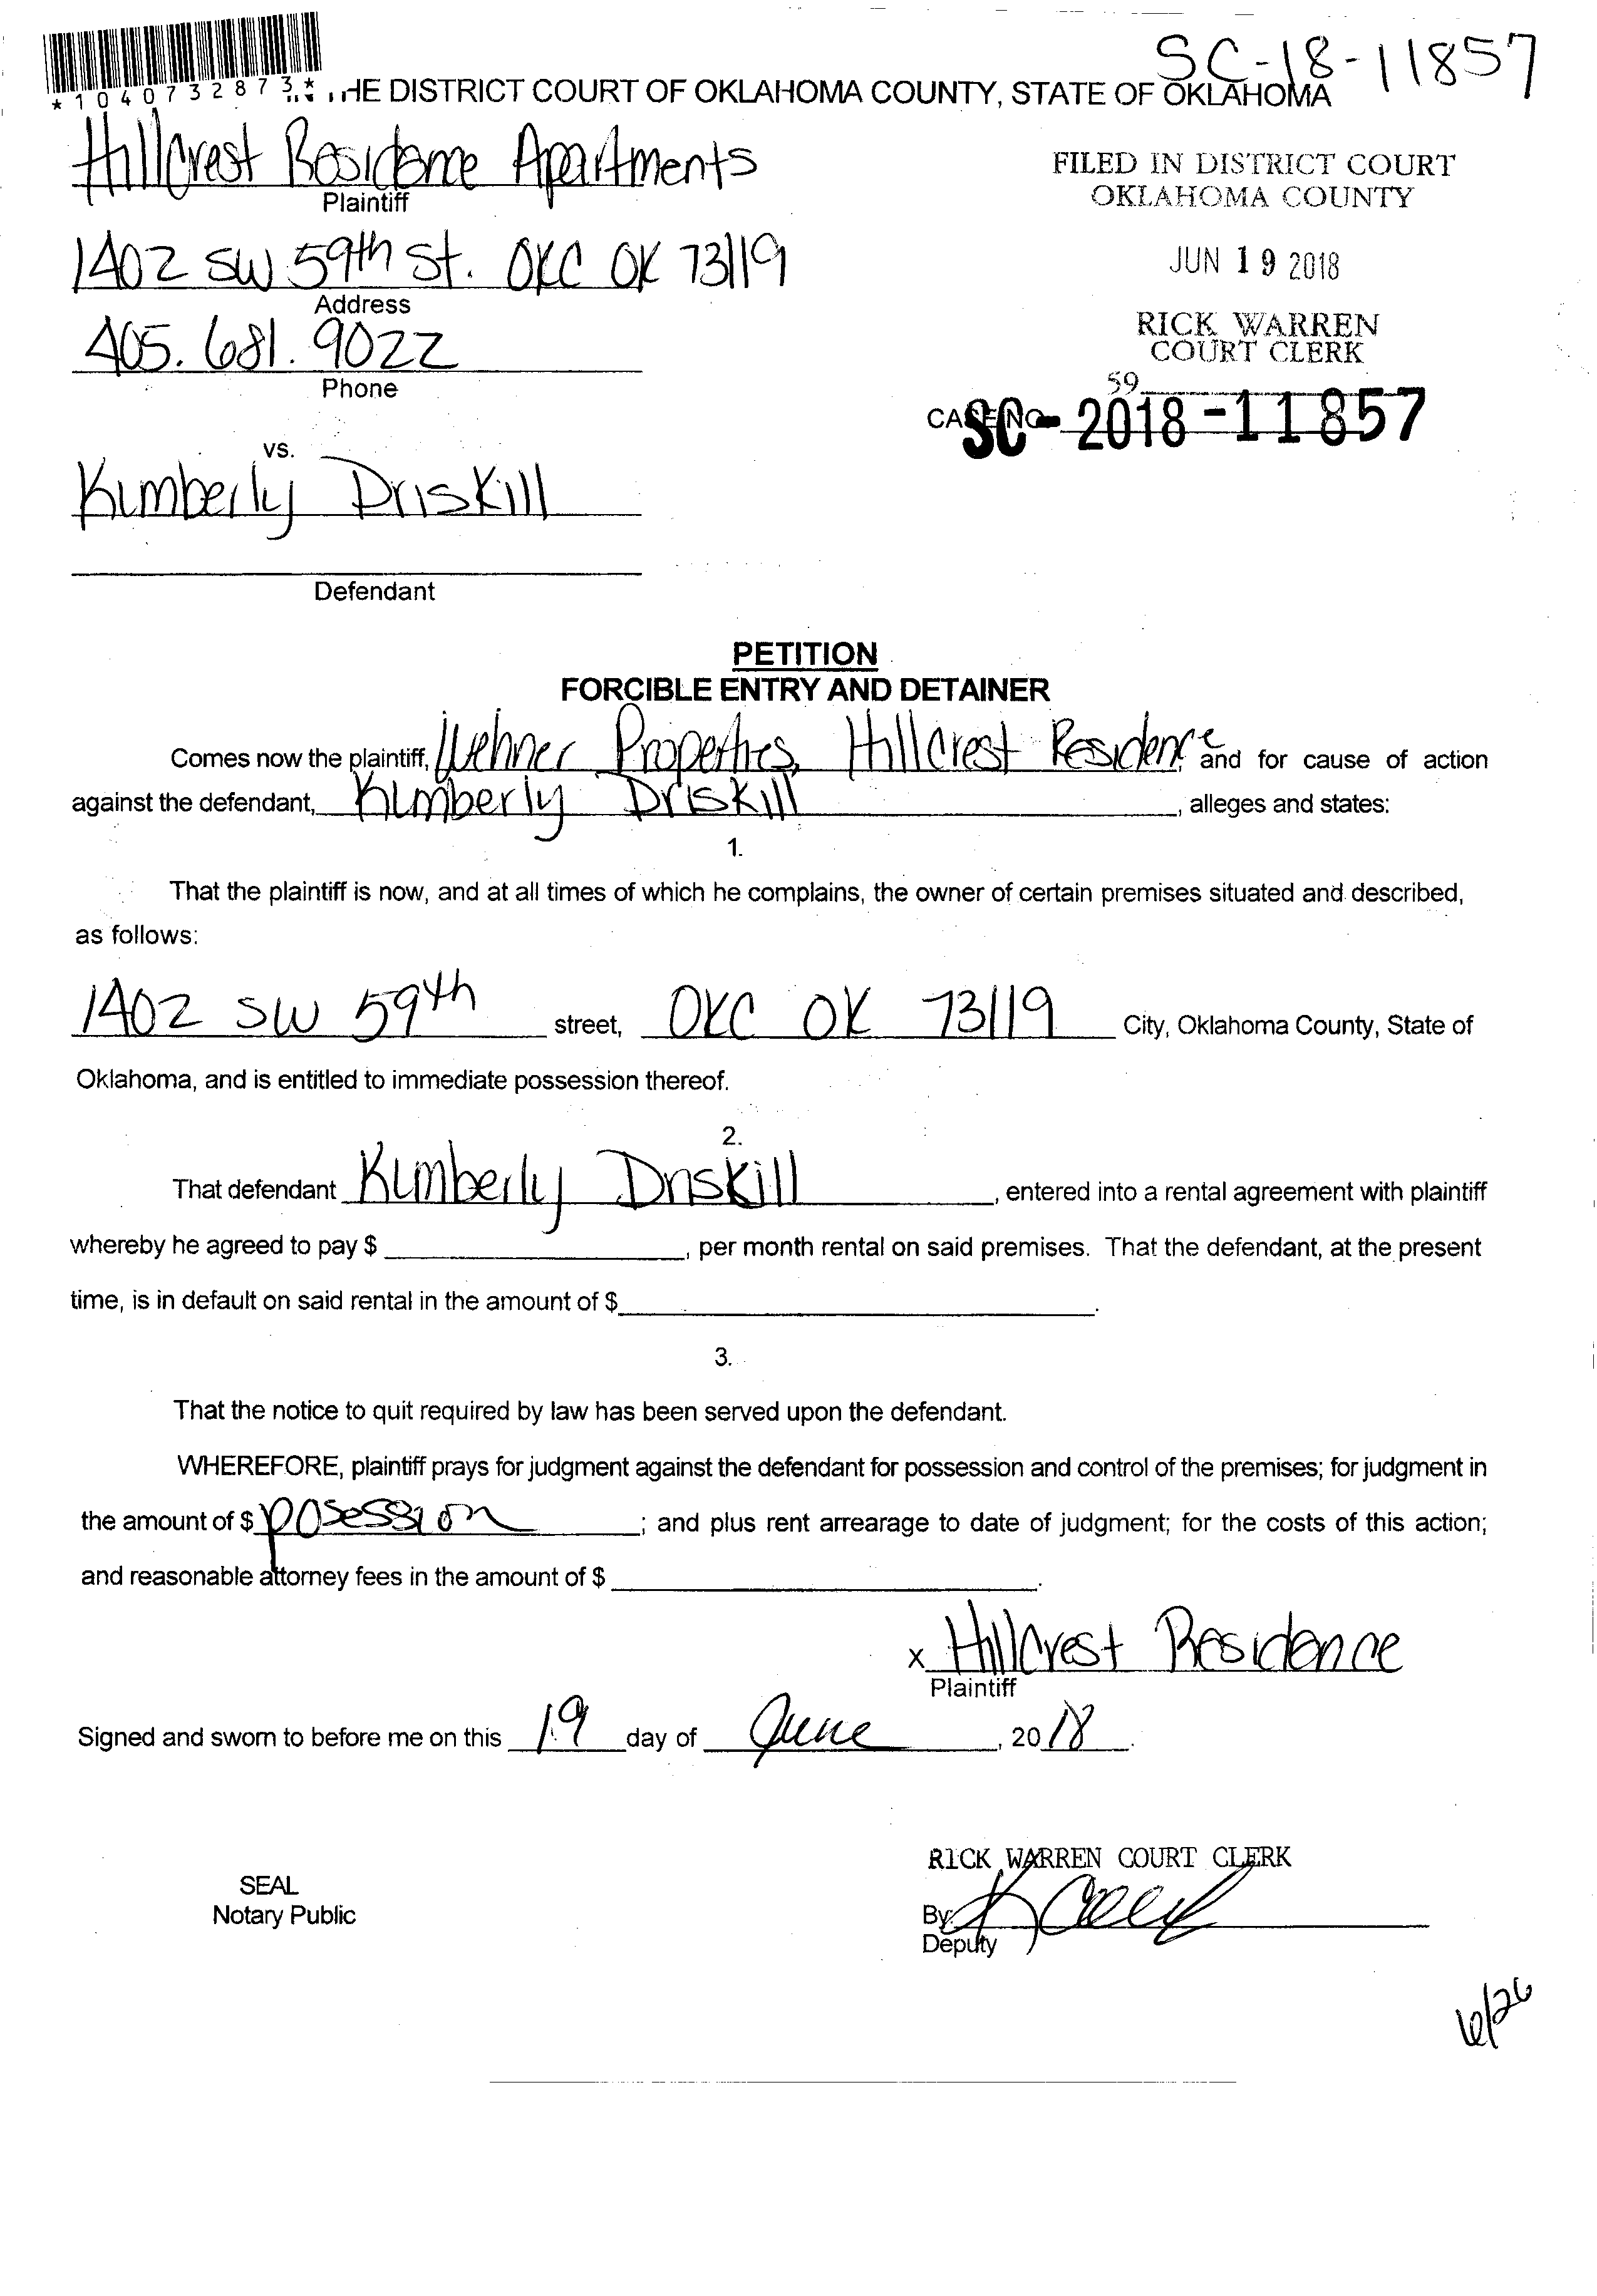 SC-18-11857
*1040732873* HE DISTRICT COURT OF OKLAHOMA COUNTY, STATE OF OKLAHOMA
Hillcrest Residence Apartments
Plaintiff
1402 SW 59th St. OKC OK 73119
Address
405.681.9022
Phone
FILED IN DISTRICT COURT
OKLAHOMA COUNTY
JUN 19 2018
RICK WARREN
COURT CLERK
59
CASE NO. SC-2018-11857
vs.
Kimberly Driskill
Defendant
PETITION
FORCIBLE ENTRY AND DETAINER
Comes now the plaintiff, Wehner Properties, Hillcrest Residence and for cause of action
against the defendant, Kimberly Driskill, alleges and states:
1.
That the plaintiff is now, and at all times of which he complains, the owner of certain premises situated and described,
as follows:
1402 SW 59th street, OKC OK 73119 City, Oklahoma County, State of
Oklahoma, and is entitled to immediate possession thereof.
2.
That defendant Kimberly Driskill, entered into a rental agreement with plaintiff
whereby he agreed to pay $ , per month rental on said premises. That the defendant, at the present
time, is in default on said rental in the amount of $ .
3.
That the notice to quit required by law has been served upon the defendant.
WHEREFORE, plaintiff prays for judgment against the defendant for possession and control of the premises; for judgment in
the amount of $ posession ; and plus rent arrearage to date of judgment; for the costs of this action;
and reasonable attorney fees in the amount of $ .
x Hillcrest Residence
Plaintiff
Signed and sworn to before me on this 19 day of June, 2018.
RICK WARREN COURT CLERK
SEAL
Notary Public
By
Deputy
6/26